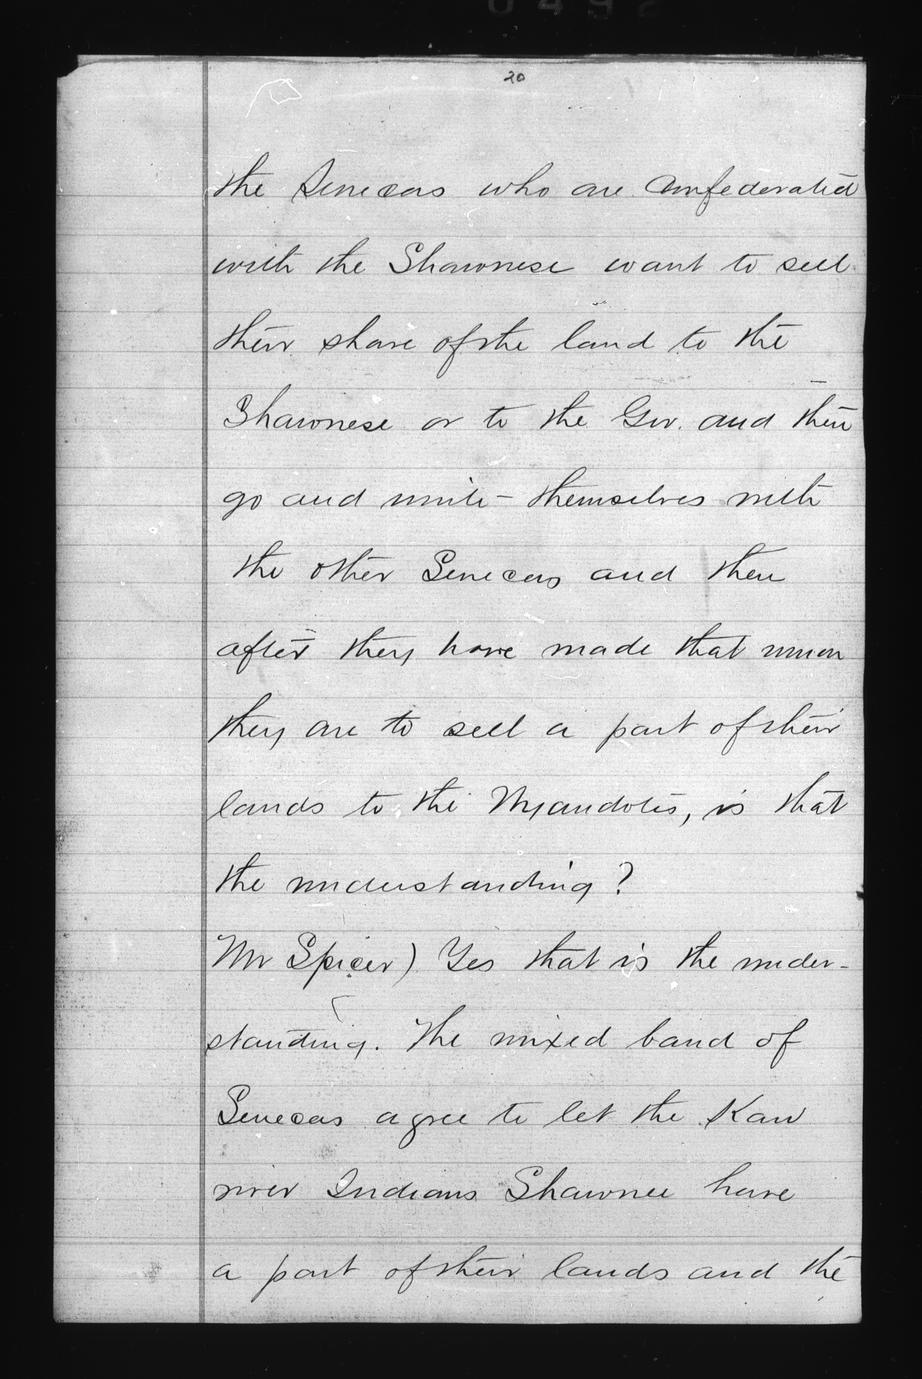 20
the Senecas who are confederated
with the Shawnese want to sell
their share of the land to the
Shawnese or to the Gov. and then
go and unite themselves with
the other Senecas and then
after they have made that union
they are to sell a part of their
lands to the Wyandotts, is that
the understanding?
Mr Spicer) Yes that is the under-
standing. The mixed band of
Senecas agree to let the Kaw
river Indians Shawnee have
a part of their lands and the